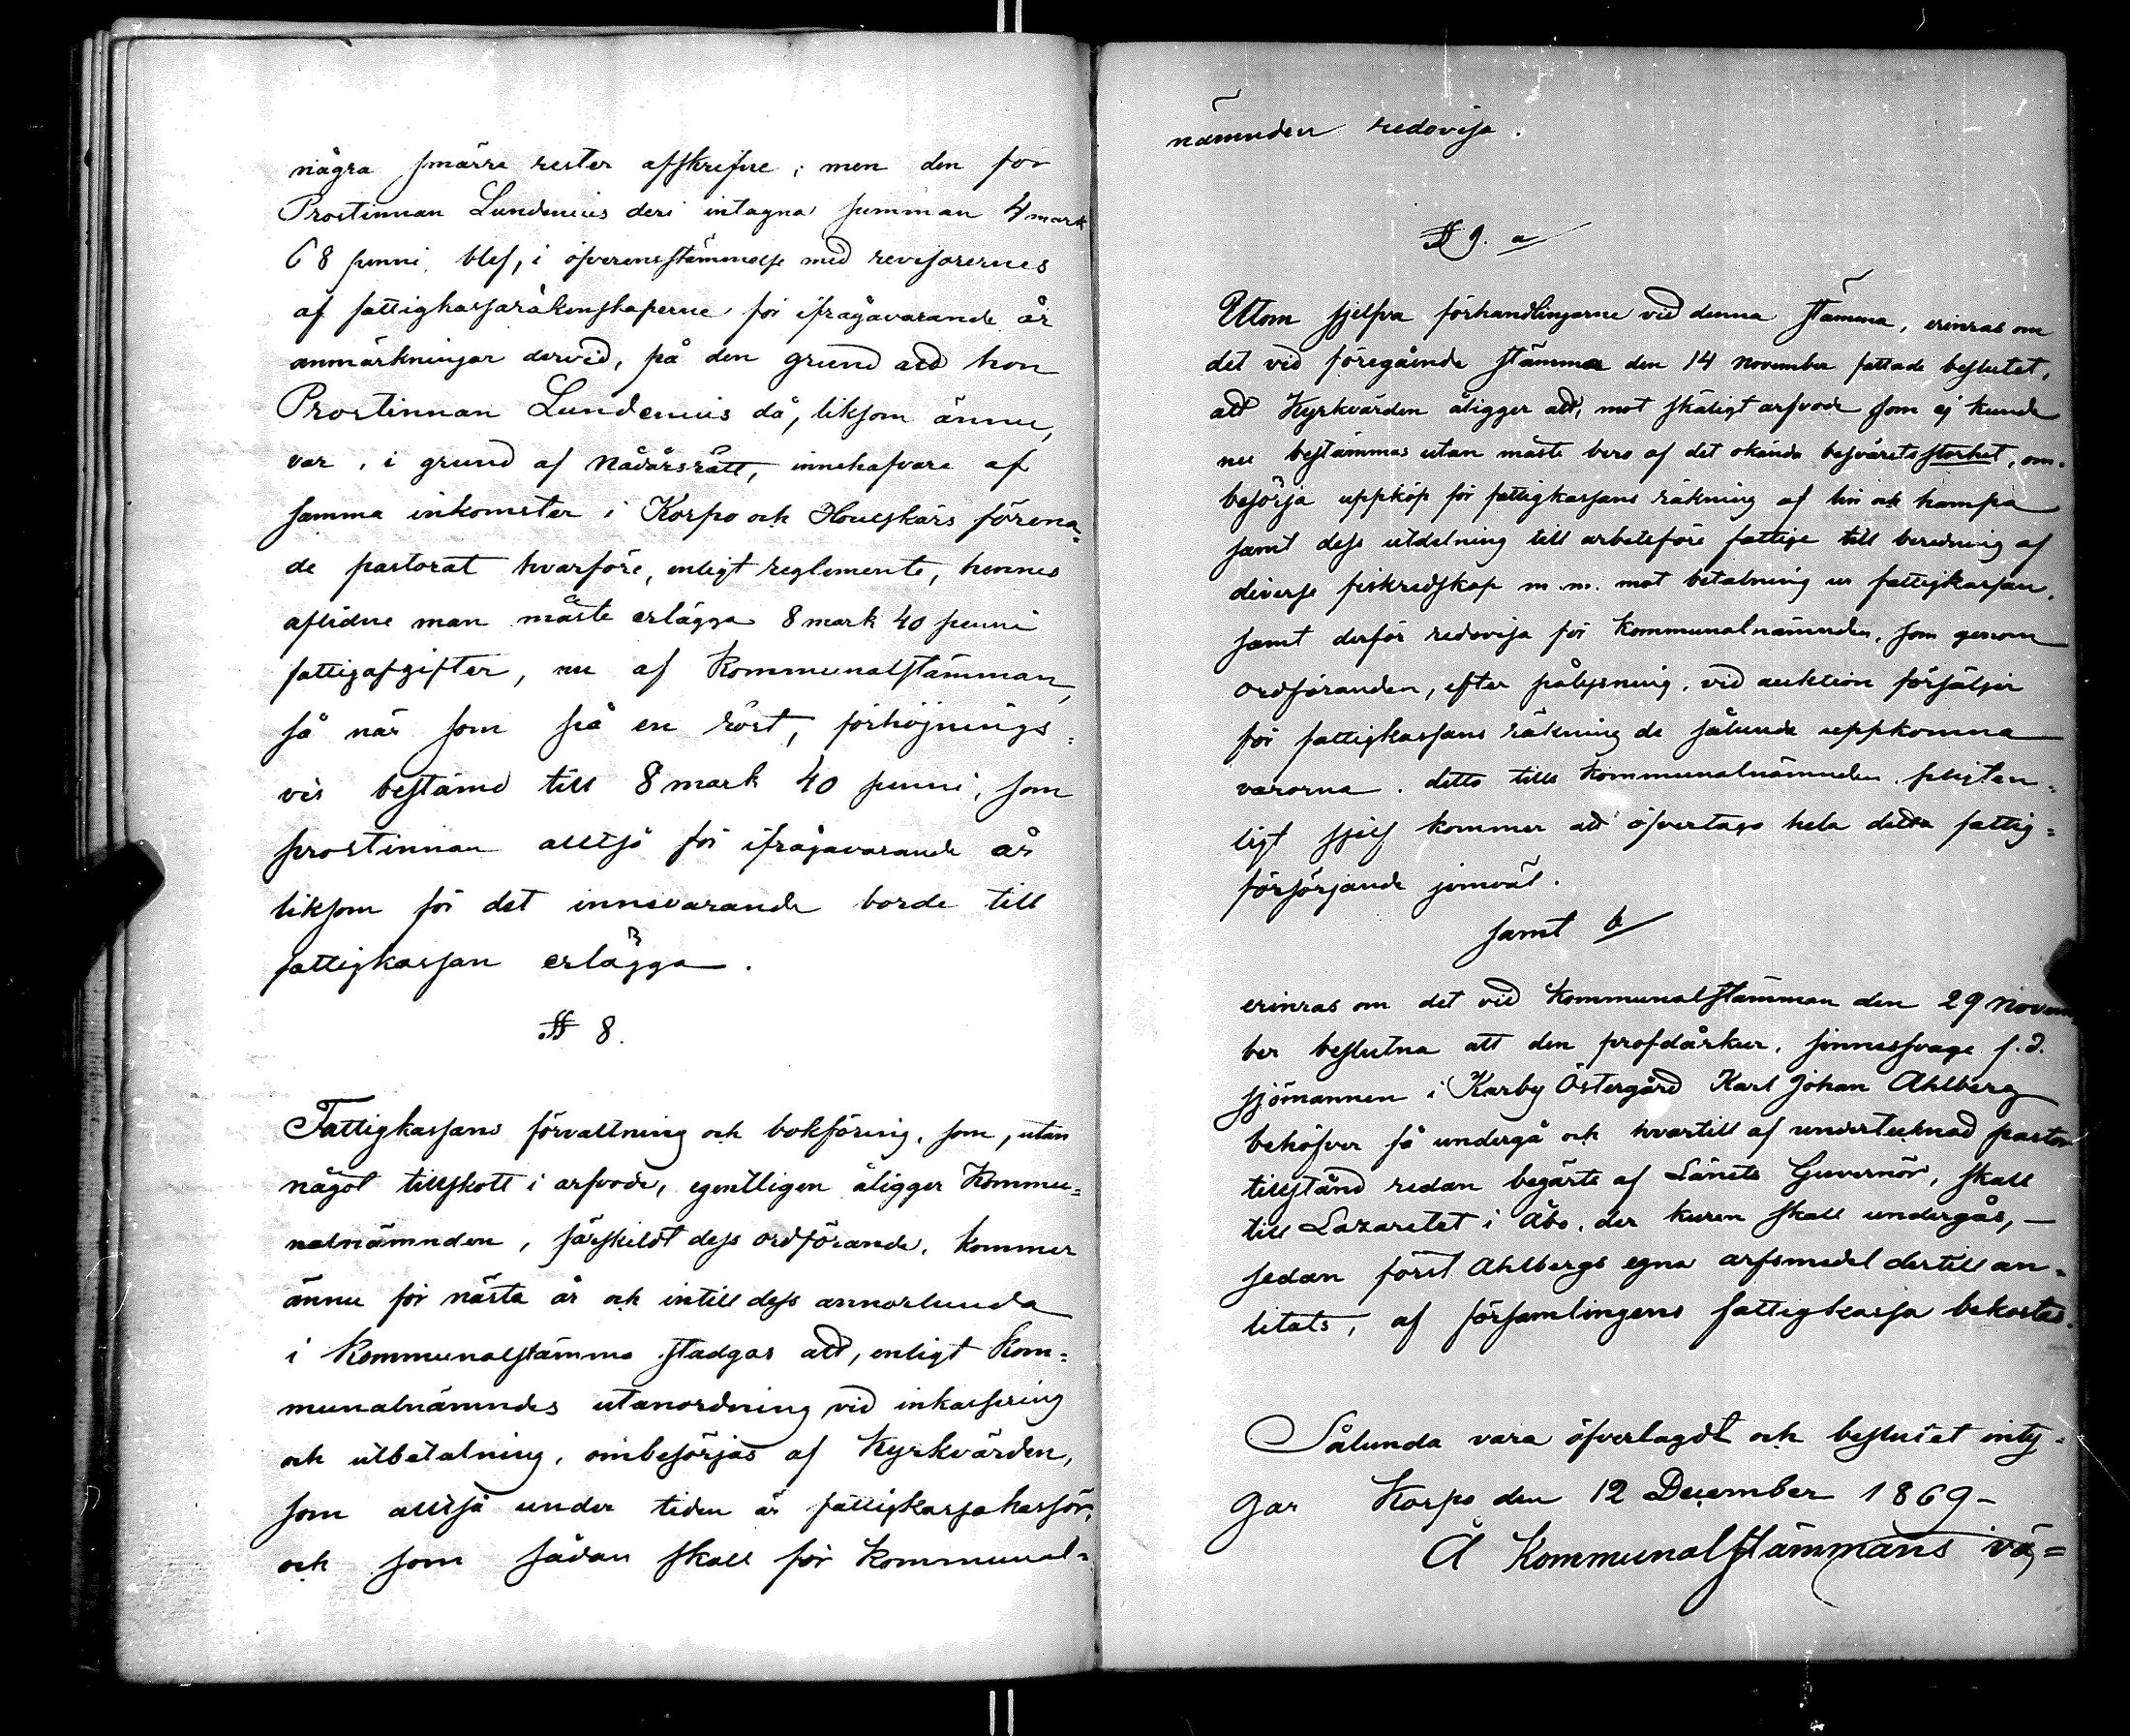 några smärre rester afskrifne; men den för
Prostinnan Lundenius deri intagna summan 4 mark
68 penni blef, i öfverensstämmelse med revisorernes
af fattigkassaräkenskaperne för ifrågavarande år
anmärkningar dervid, på den grund att hon
Prostinnan Lundenius då, liksom ännu,
var, i grund af Nådårsrätt, innehafvare af
samma inkomster i Korpo och Houtskärs förena-
de pastorat hvarföre, enligt reglemente, hennes
aflidne man måste erlägga 8 mark 40 penni
fattigafgifter, nu af Kommunalstämman,
så när som på en röst, förhöjnings-
vis bestämd till 8 mark 40 penni, som
prostinnan alltså för ifrågavarande år
liksom för det innevarande borde till
fattigkassan erlägga.
§ 8.
Fattigkassans förvaltning och bokföring, som, utan
något tillskott i arfvode, egentligen åligger Kommu=
nalnämnden, särskildt dess ordförande, kommer
ännu för nästa år och intill dess annorlunda
i Kommunalstämma stadgas att, enligt Kom=
munalnämndes utanordning vid inkassering
och utbetalning, ombesörjas af Kyrkvärden,
som alltså under tiden är fattigkassakassör,
och som sådan skall för Kommunal=
nämnden redovisa.
§ 9. a/
Utom sjelfva förhandlingarne vid denna stämma, erinras om
det vid föregående stämma den 14 November fattade beslutet,
att Kyrkvärden åligger att, mot skäligt arfvode som ej kunde
nu bestämmas utan måste bero af det okända besvärets storhet, om-
besörja uppköp för fattigkassans räkning af lin och hampa
samt dess utdelning till arbetsföre fattige till beredning af
diverse fiskredskap m.m. mot betalning ur fattigkassan,
samt derför redovisa för Kommunalnämnden, som genom
ordföranden, efter pålysning, vid auktion försäljer
för fattigkassans räkning de sålunda uppkomna
varorna. detta tills Kommunalnämnden pligten-
ligt sjelf kommer att öfvertaga hela detta fattig=
försörjande jemväl.
samt b/
erinras om det vid Kommunalstämman den 29 Novem
ber beslutna att den profdårkur, sinnessvage f.d.
sjömannen i Karby Östergård Karl Johan Ahlberg
behöfver få undergå och hvartill af undertecknad pastor
tillstånd redan begärts af Länets Guvernör, skall
till Lazarettet i Åbo, der kuren skall undergås, —
sedan först Ahlbergs egna arfsmedel dertill an-
litats, af församlingens fattigkassa bekostas.
Sålunda vara öfverlagdt och beslutet inty-
gar Korpo den 12 December 1869 –
Å Kommunalstämmans väg=